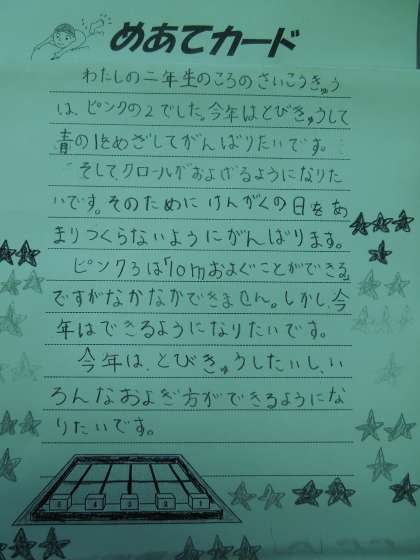 めあてカード
わたしの二年生のころのさいこうきゅう
は、ピンクの2でした。今年はとびきゅうして
青の1をめざしてがんばりたいです。
そしてクロールがおよげるようになりた
いです。そのためにけんがくの日をあ
まりつくらないようにがんばります。
ピンク3は710mおよぐことができる
ですがなかなかできません。しかし、今
年はできるようになりたいです。
今年は、とびきゅうしたいし、い
ろんなおよぎ方ができるようにな
りたいです。
5 4 3 2 1